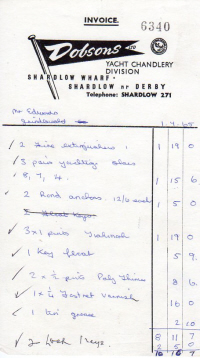 INVOICE.
6340
Dobsons LTD
YACHT CHANDLERY
DIVISION
SHARDLOW WHARF
SHARDLOW NR DERBY
Telephone: SHARDLOW 271
Mr Edwards
1. 4. 65
2 Fire extinguishers 1 19 0
3 pairs yachting shoes
8, 7, 4. 1 15 6
2 Rond anchors 12/6 each 1 5 0
3 x 1 pints 1 19 0
1 Key float 5 9
2 x ½ pints 8 6
1 x ½ varnish 16 0
1 tin grease 2 10
8 11 7
2 Lock Keys. 2 5 0
10 16 7